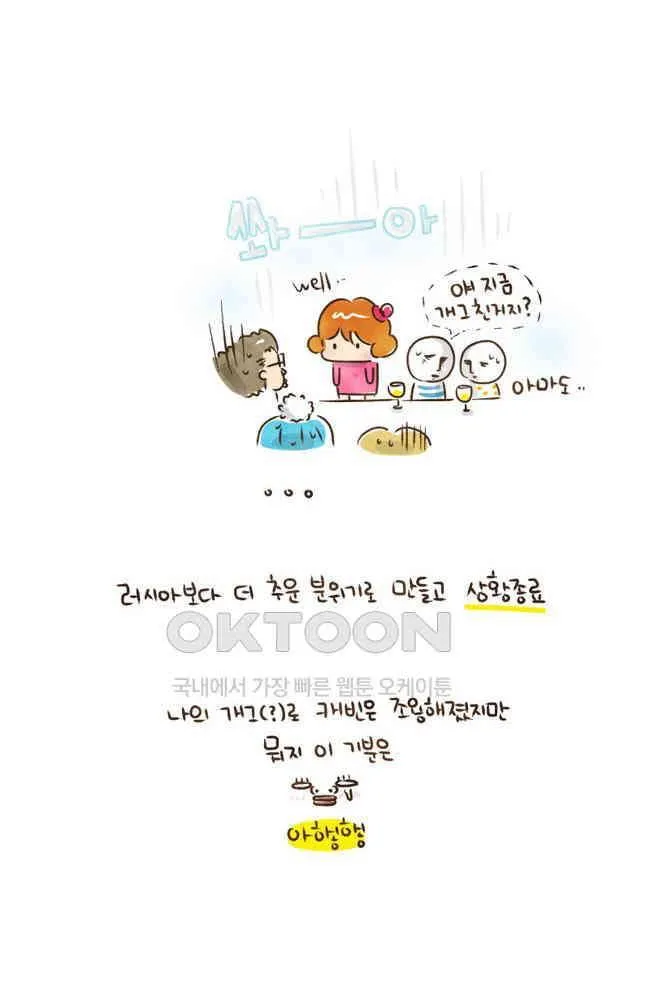 쏴ー아
well..
얘 지금
개그친거지?
아마도..
...
러시아보다 더 추운 분위기로 만들고 상황종료
OKTOON
국내에서 가장 빠른 웹툰 오케이툰
나의 개그(?)로 캐빈은 조용해졌지만
뭐지 이 기분은
아헝헝